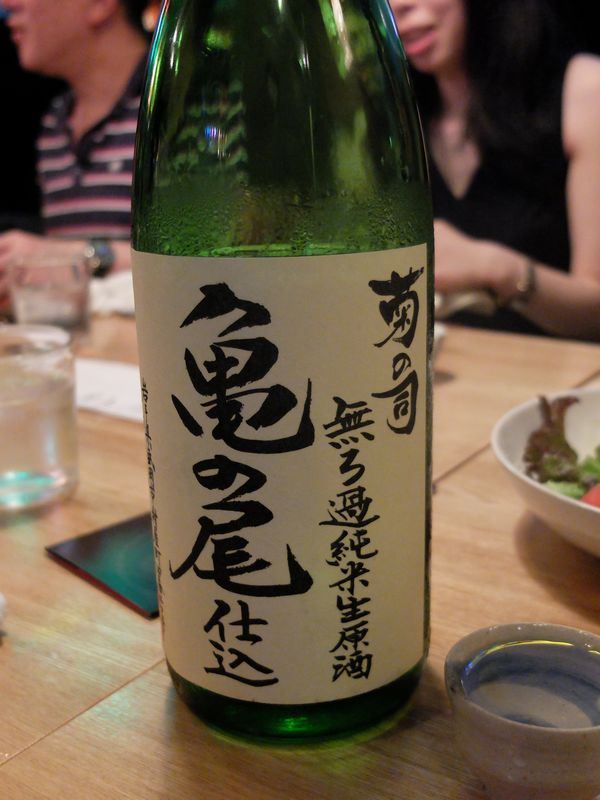 菊の司
無ろ過純米生原酒
亀の尾仕込